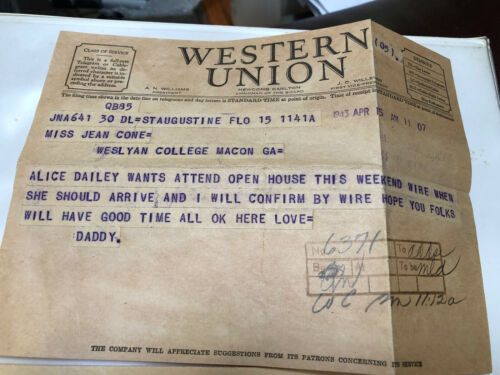 CLASS OF SERVICE
This is a full-rate Telegram or Cablegram unless its deferred character is indicated by a suitable symbol above or preceding the address.
WESTERN
UNION
A. N. WILLIAMS
PRESIDENT
NEWCOMB CARLTON
CHAIRMAN OF THE BOARD
J. C. WILLEVER
FIRST VICE-PRESIDENT
The filing time shown in the date line on telegrams and day letters is STANDARD TIME at point of origin. Time of receipt
QB85
JNA641 30 DL=STAUGUSTINE FLO 15 1141A
1943 APR 15 AM 11 07
MISS JEAN CONE=
WESLYAN COLLEGE MACON GA=
ALICE DAILEY WANTS ATTEND OPEN HOUSE THIS WEEKEND WIRE WHEN
SHE SHOULD ARRIVE AND I WILL CONFIRM BY WIRE HOPE YOU FOLKS
WILL HAVE GOOD TIME ALL OK HERE LOVE=
DADDY.
No. 6371 To
By At To be
11:12a
THE COMPANY WILL APPRECIATE SUGGESTIONS FROM ITS PATRONS CONCERNING ITS SERVICE